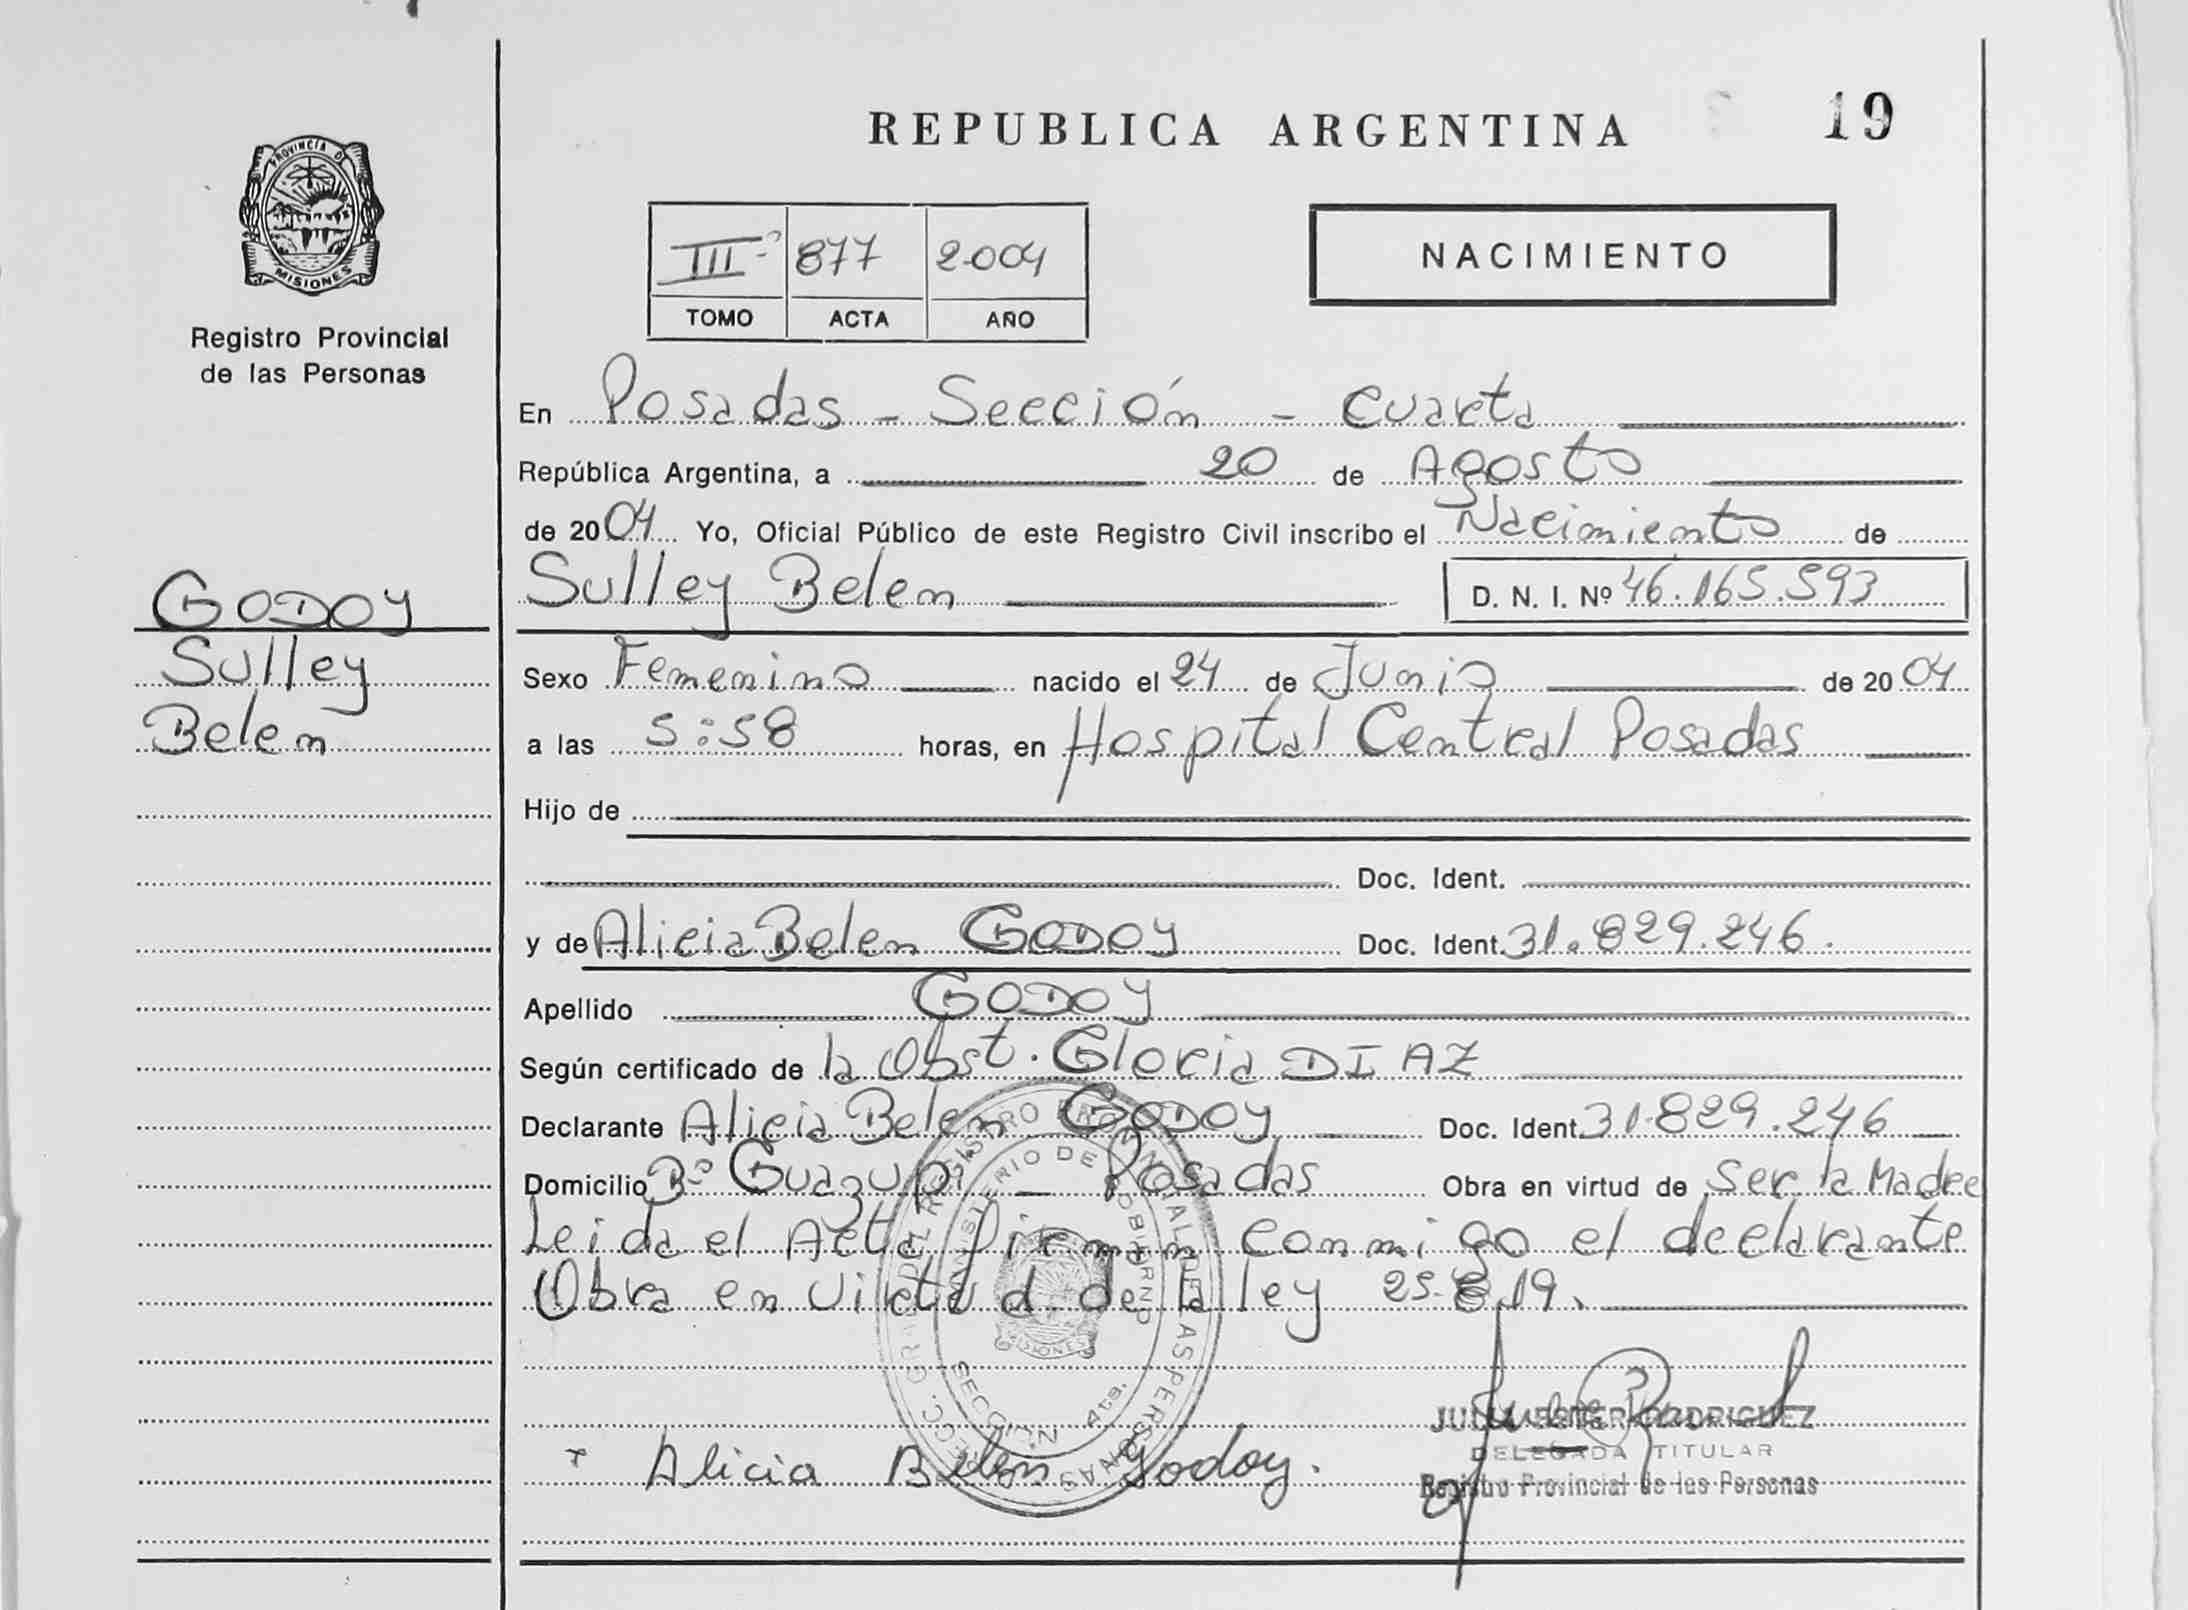 REPUBLICA ARGENTINA
19
PROVINCIA DE
MISIONES
Registro Provincial
de las Personas
III° 877 2.004
TOMO ACTA AÑO
NACIMIENTO
En Posadas - Sección - Cuarta
República Argentina, a 20 de Agosto
de 2004 Yo, Oficial Público de este Registro Civil inscribo el Nacimiento de
Sulley Belen D. N. I. Nº 46.165.593
GODOY
Sulley
Belen
Sexo Femenino nacido el 24 de Junio de 2004
a las 5:58 horas, en Hospital Central Posadas
Hijo de
Doc. Ident.
y de Alicia Belen GODOY Doc. Ident. 31.829.246.
Apellido GODOY
Según certificado de la Obst. Gloria DIAZ
Declarante Alicia Belen GODOY Doc. Ident. 31.829.246
Domicilio Bº Guazupi - Posadas Obra en virtud de Ser la Madre
Leida el Acta firman conmigo el declarante
Obra en virtud de la ley 25.819.
Alicia Belen Godoy.
JULIA ESTER RODRIGUEZ
DELEGADA TITULAR
Registro Provincial de las Personas